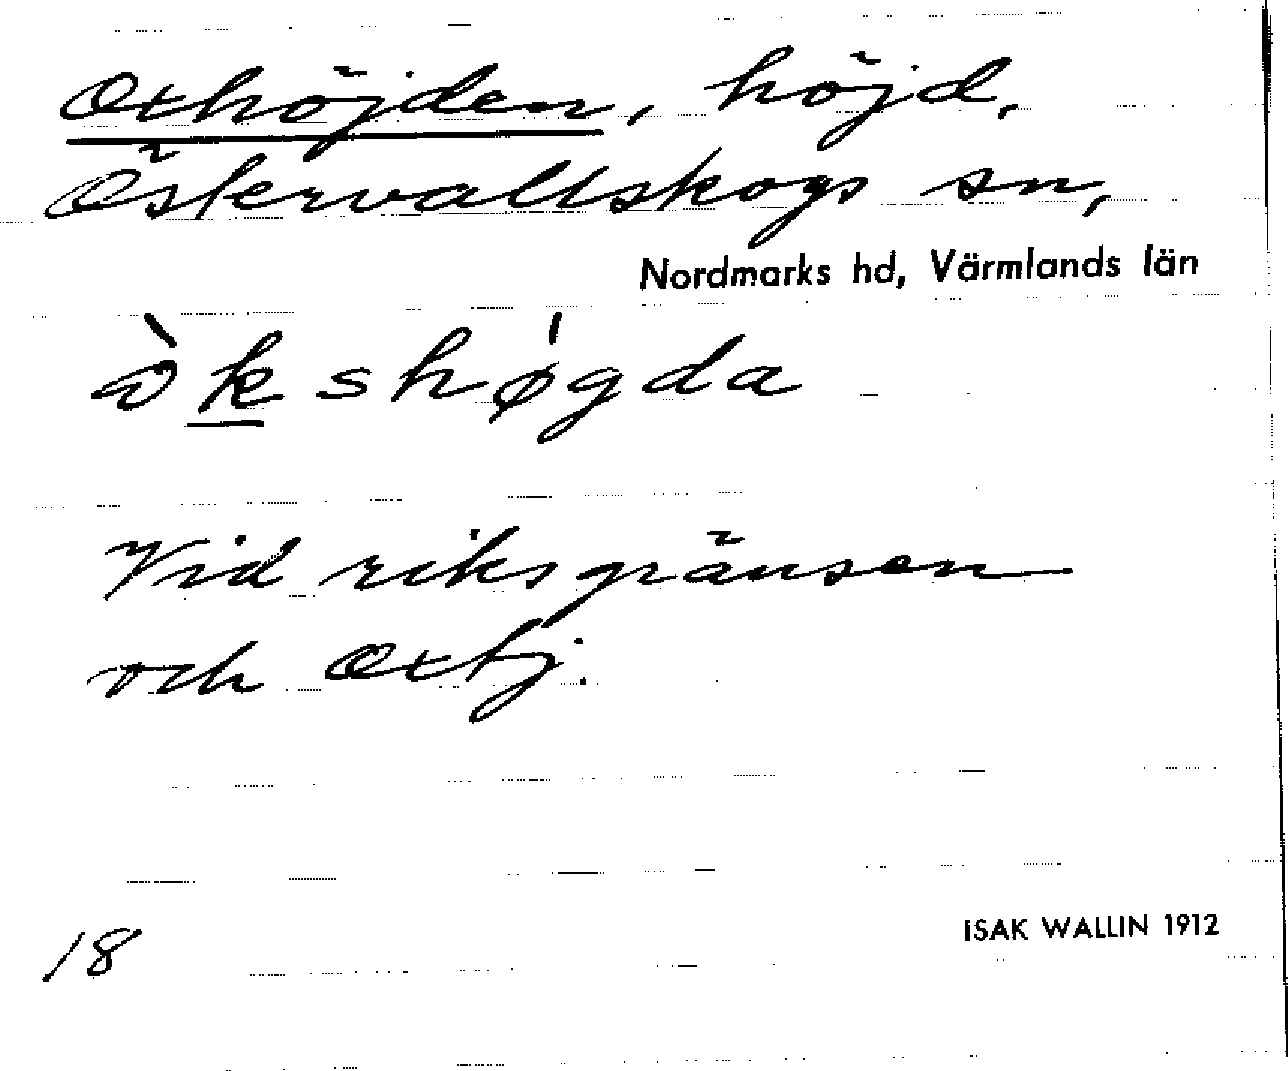 Oxhöjden, höjd,
Östervallskogs sn,
Nordmarks hd, Värmlands län
òkshǿgda
Vid riksgränsen
och Oxtj.
18
ISAK WALLIN 1912